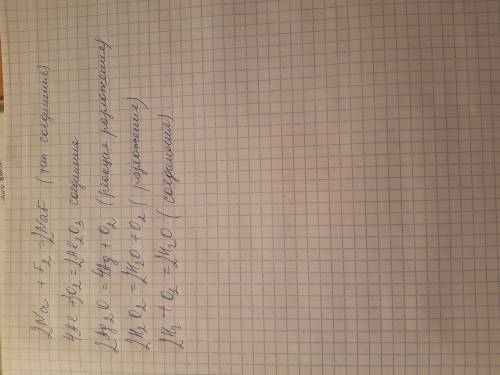 2Na + F₂ = 2NaF (тип соединения)
4Al + 3O₂ = 2Al₂O₃ соединения
2Ag₂O = 4Ag + O₂ (реакция разложения)
2H₂O₂ = 2H₂O + O₂ (разложение)
2H₂ + O₂ = 2H₂O (соединения)